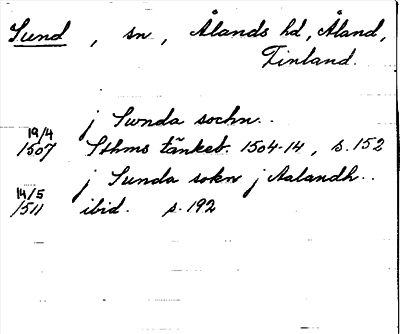 Sund , sn , Ålands hd, Åland,
Finland.
j Swnda sochn..
19/4
1507 Sthms tänkeb. 1504-14, s. 152
j Sunda sokn j Aalandh..
14/5
1511 ibid. s. 192